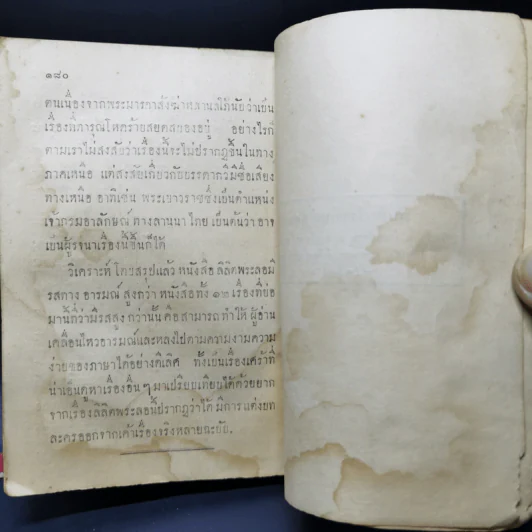 ๑๘๐
ตนเนื่องจากพระมารดาสั่งฆ่าหลานสใภ้นัยว่าเป็น
เรื่องที่ทารุณโหดร้ายสยดสยองอยู่ อย่างไรก็
ตามเราไม่สงสัยว่าเรื่องนี้จะไม่ปรากฏขึ้นในทาง
ภาคเหนือ แต่สงสัยเกี่ยวกับบรรดากวีมีชื่อเสียง
ทางเหนือ อาทิเช่น พระเยาวราชซึ่งเป็นตำแหน่ง
เจ้ากรมอาลักษณ์ ทางลานนาไทย เป็นต้นว่า อาจ
เป็นผู้รจนาเรื่องนี้ขึ้นก็ได้
วิเคราะห์ โดยสรุปแล้ว หนังสือ ลิลิตพระลอมี
รสทาง อารมณ์ สูงกว่า หนังสือทั้ง ๑๒ เรื่องที่ย่อ
มานี้ที่ว่ามีรสสูง กว่านั้น คือ สามารถ ทำให้ ผู้อ่าน
เคลื่อนไหวอารมณ์และหลงไปตามความงามความ
ง่ายของภาษาได้อย่างดีเลิศ ทั้งเป็นเรื่องเศร้าที่
น่าเอ็นดูหาเรื่องอื่น ๆ มาเปรียบเทียบได้ด้วยยาก
จากเรื่องลิลิตพระลอนี้ปรากฏว่าได้ มีการ แต่งบท
ละครออกจากเค้าเรื่องจริงหลายฉะบับ.